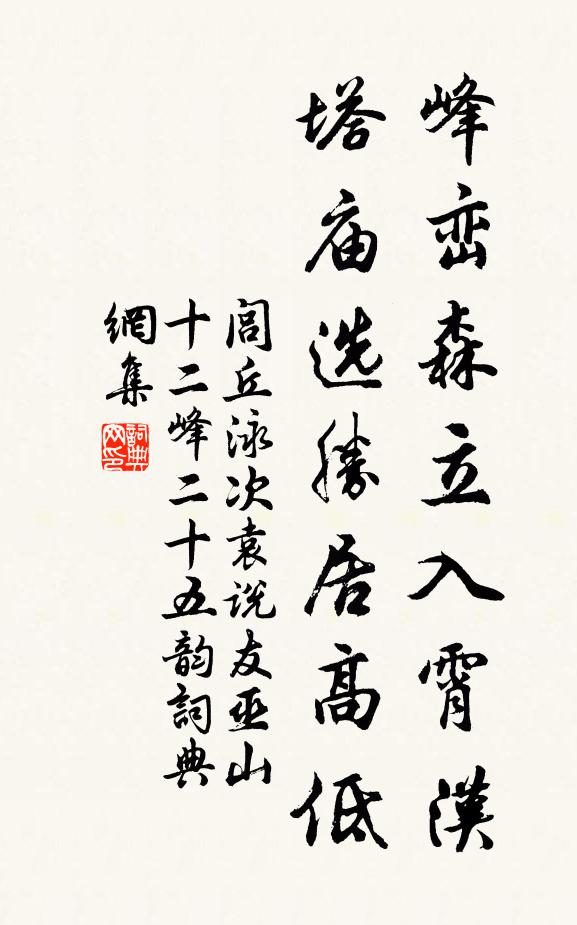 峰峦森立入霄漢
塔庙选勝居高低
閭丘泳次袁说友巫山
十二峰二十五韵詞典
網集
詞典
网印